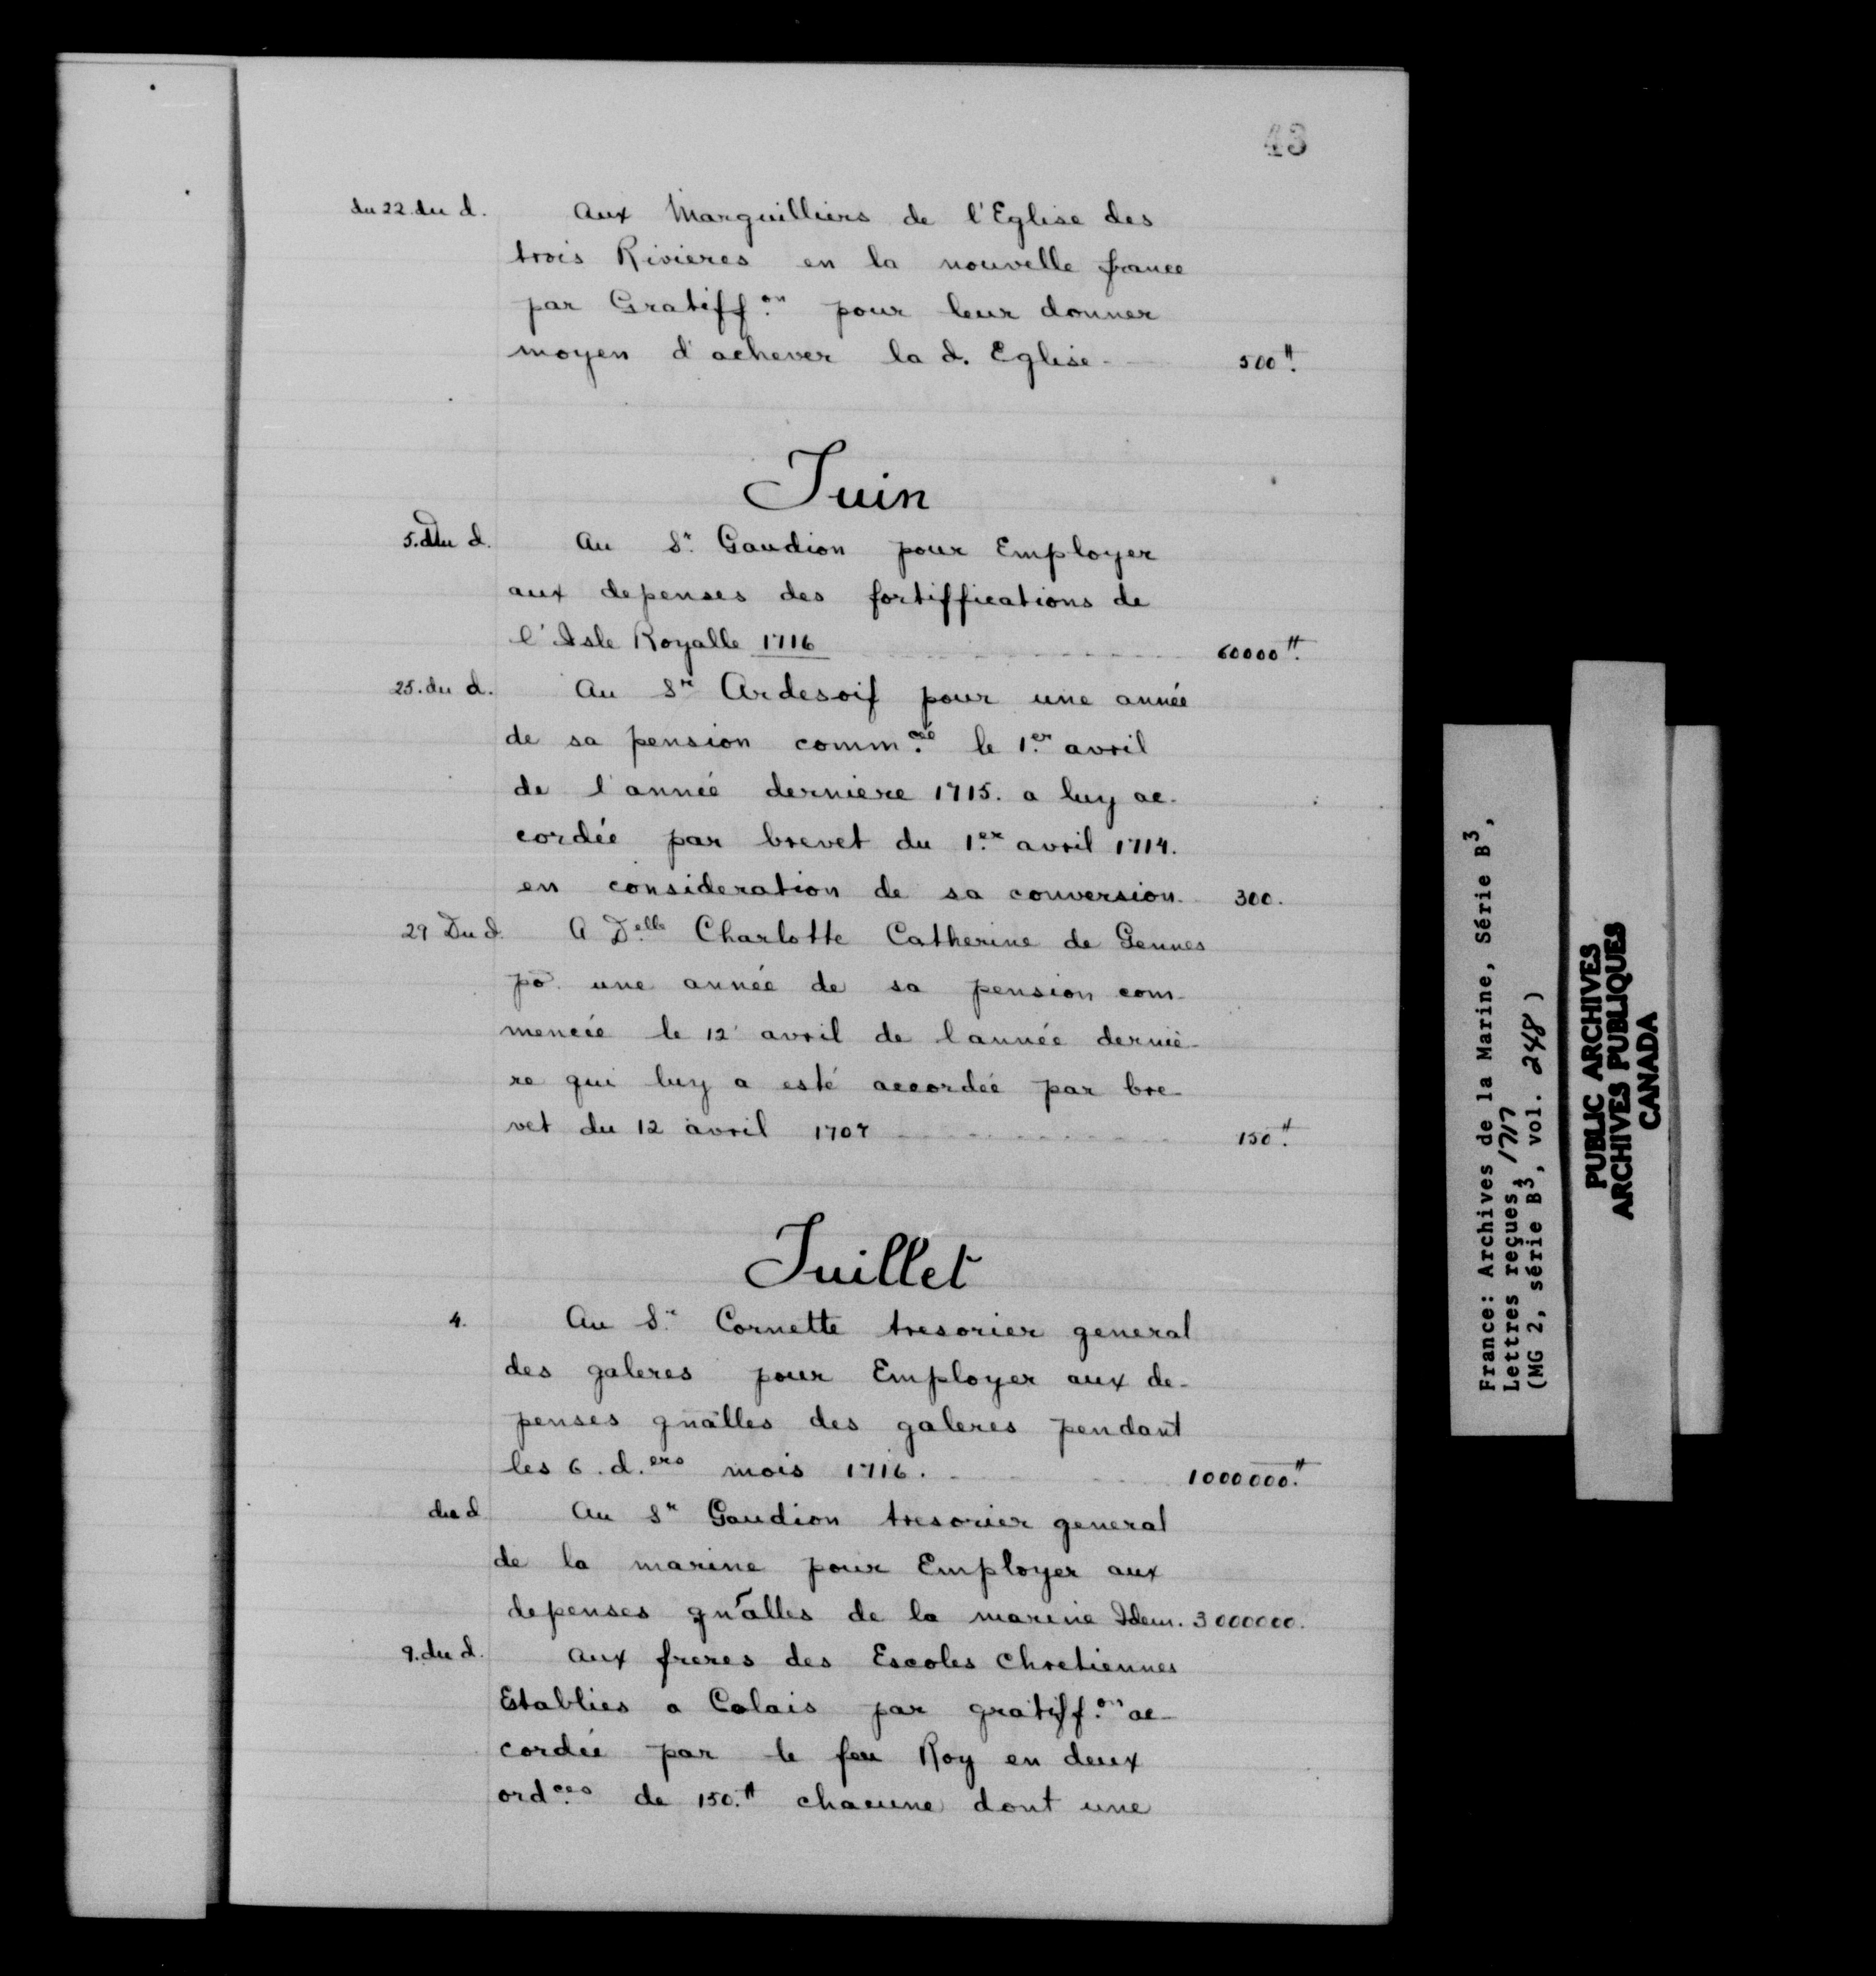 43
du 22. du d. Aux Marguilliers de l'Eglise des
trois Rivieres en la nouvelle france
par Gratiff.on pour leur donner
moyen d'achever la d. Eglise 500tt.
Juin
5. du d. Au Sr. Gaudion pour Employer
aux depenses des fortiffications de
l'Isle Royalle 1716 60000tt.
25. du d. Au Sr Ardesoif pour une année
de sa pension comm.cé le 1.er avril
de l'année derniere 1715. a luy ac-
cordée par brevet du 1.er avril 1714.
en consideration de sa conversion 300.
29 Du d. A D.elle Charlotte Catherine de Gennes
po. une année de sa pension com-
mencée le 12 avril de l'année derniè-
re qui luy a esté accordée par bre-
vet du 12 avril 1707 150tt.
Juillet
4. Au Sr. Cornette tresorier general
des galeres pour Employer aux de-
penses gnãlles des galeres pendant
les 6. d.ers mois 1716. 1000000.tt
du d Au Sr Gaudion tresorier general
de la marine pour Employer aux
depenses gnãlles de la marine Idem. 3000000.
9. du d. Aux freres des Escoles Chretiennes
Etablies a Calais par gratiff.on ac-
cordée par le feu Roy en deux
ord.ces de 150.tt chacune dont une
France: Archives de la Marine, Série B3,
Lettres reçues, 1717
(MG 2, série B3, vol. 248)
PUBLIC ARCHIVES
ARCHIVES PUBLIQUES
CANADA